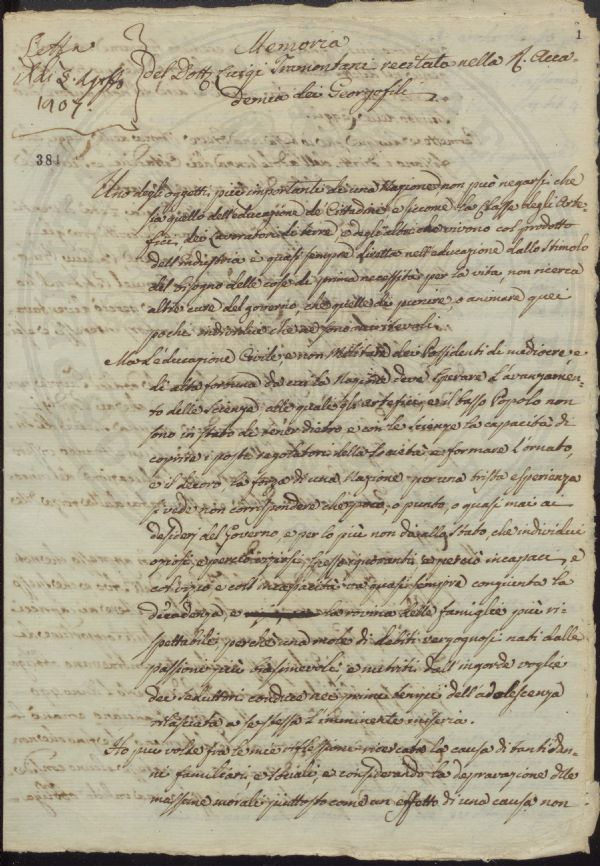 1
Letta
Adì 5. Agosto
1807.
Memoria
del Dott. Luigi Tramontani recitata nella R. Acca-
demia dei Georgofili
381
Uno degli oggetti più importanti di una Nazione non può negarsi che
sia quello dell'educazione de Cittadini e siccome la Classe degli Arte-
fici, dei Lavoratori di terre e degli altri che vivono col prodotto
dell'industria è quasi sempre diretta nell'educazione dallo stimolo
del bisogno delle cose di prima necessità per la vita, non ricerca
altre cure del governo, che quelle di punire, o animare quei
pochi individui che ne sono meritevoli.
Ma l'educazione Civile e non Militare dei Possidenti di mediocre, e
di alta fortuna da cui la Nazione deve sperare l'avanzamen-
to delle scienze alle quali gli artefici, e il basso Popolo non
sono in stato di tener dietro e con le scienze la capacità di
coprire i posti regolatori della Società e formare l'ornato,
e il decoro la forza di una Nazione per una trista esperienza
si vede non corrispondere che poco, o punto, o quasi mai ai
desiderj del Governo, e per lo più non dà allo stato, che individui
oziosi, e perciò viziosi, spesso ignoranti e perciò incapaci, e
col vizio e coll'incapacità va quasi sempre congiunta la
decadenza, e la rovina delle famiglie più ri-
spettabili, perchè una mole di debiti vergognosi nati dalle
passioni più biasimevoli e nutriti dall'ingorde voglie
dei seduttori conduce nei primi tempi dell'adolescenza
rilasciata a se stessa l'imminente miseria.
Ho più volte fra le mie riflessioni ricercato la causa di tanti disor-
ni familiari, e sociali, e considerando la depravazione delle
massime morali piuttosto come un effetto di una causa non